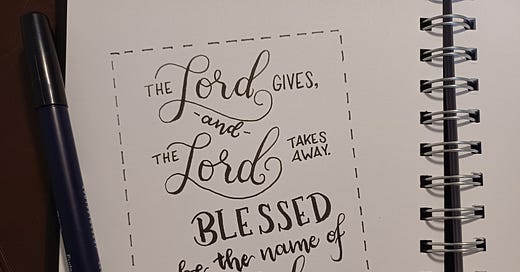 THE Lord GIVES,
-and-
THE Lord TAKES AWAY.
BLESSED
be the name of